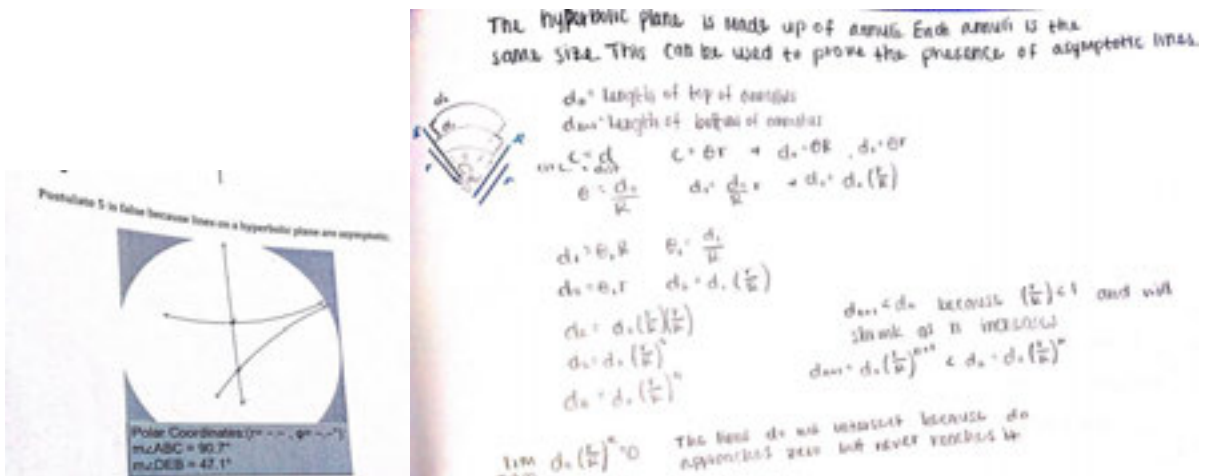 Postulate 5 is false because lines on a hyperbolic plane are asymptotic.
Polar Coordinates:(r= - - - , φ= -.-°)
m∠ABC = 90.7°
m∠DEB = 47.1°
The hyperbolic plane is made up of annuli. Each annuli is the
same size. This can be used to prove the presence of asymptotic lines.
d₀ = length of top of annulus
dₙₑₓₜ = length of bottom of annulus
C = θr → d₀ = θR , d₁ = θr
θ = d₀/R d₁ = d₀/R r → d₁ = d₀(r/R)
d₁ = θ₁R θ₁ = d₁/R
d₂ = θ₁r d₂ = d₁(r/R)
d₂ = d₀(r/R)(r/R)
d₂ = d₀(r/R)²
dₙ = d₀(r/R)ⁿ
dₙ₊₁ < dₙ because (r/R) < 1 and will
shrink as n increases
dₙ₊₁ = d₀(r/R)ⁿ⁺¹ < dₙ = d₀(r/R)ⁿ
lim d₀(r/R)ⁿ = 0
The lines do not intersect because dₙ
approaches zero but never reaches it